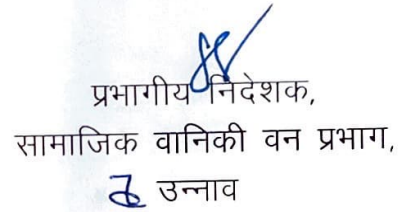 प्रभागीय निदेशक,
सामाजिक वानिकी वन प्रभाग,
उन्नाव